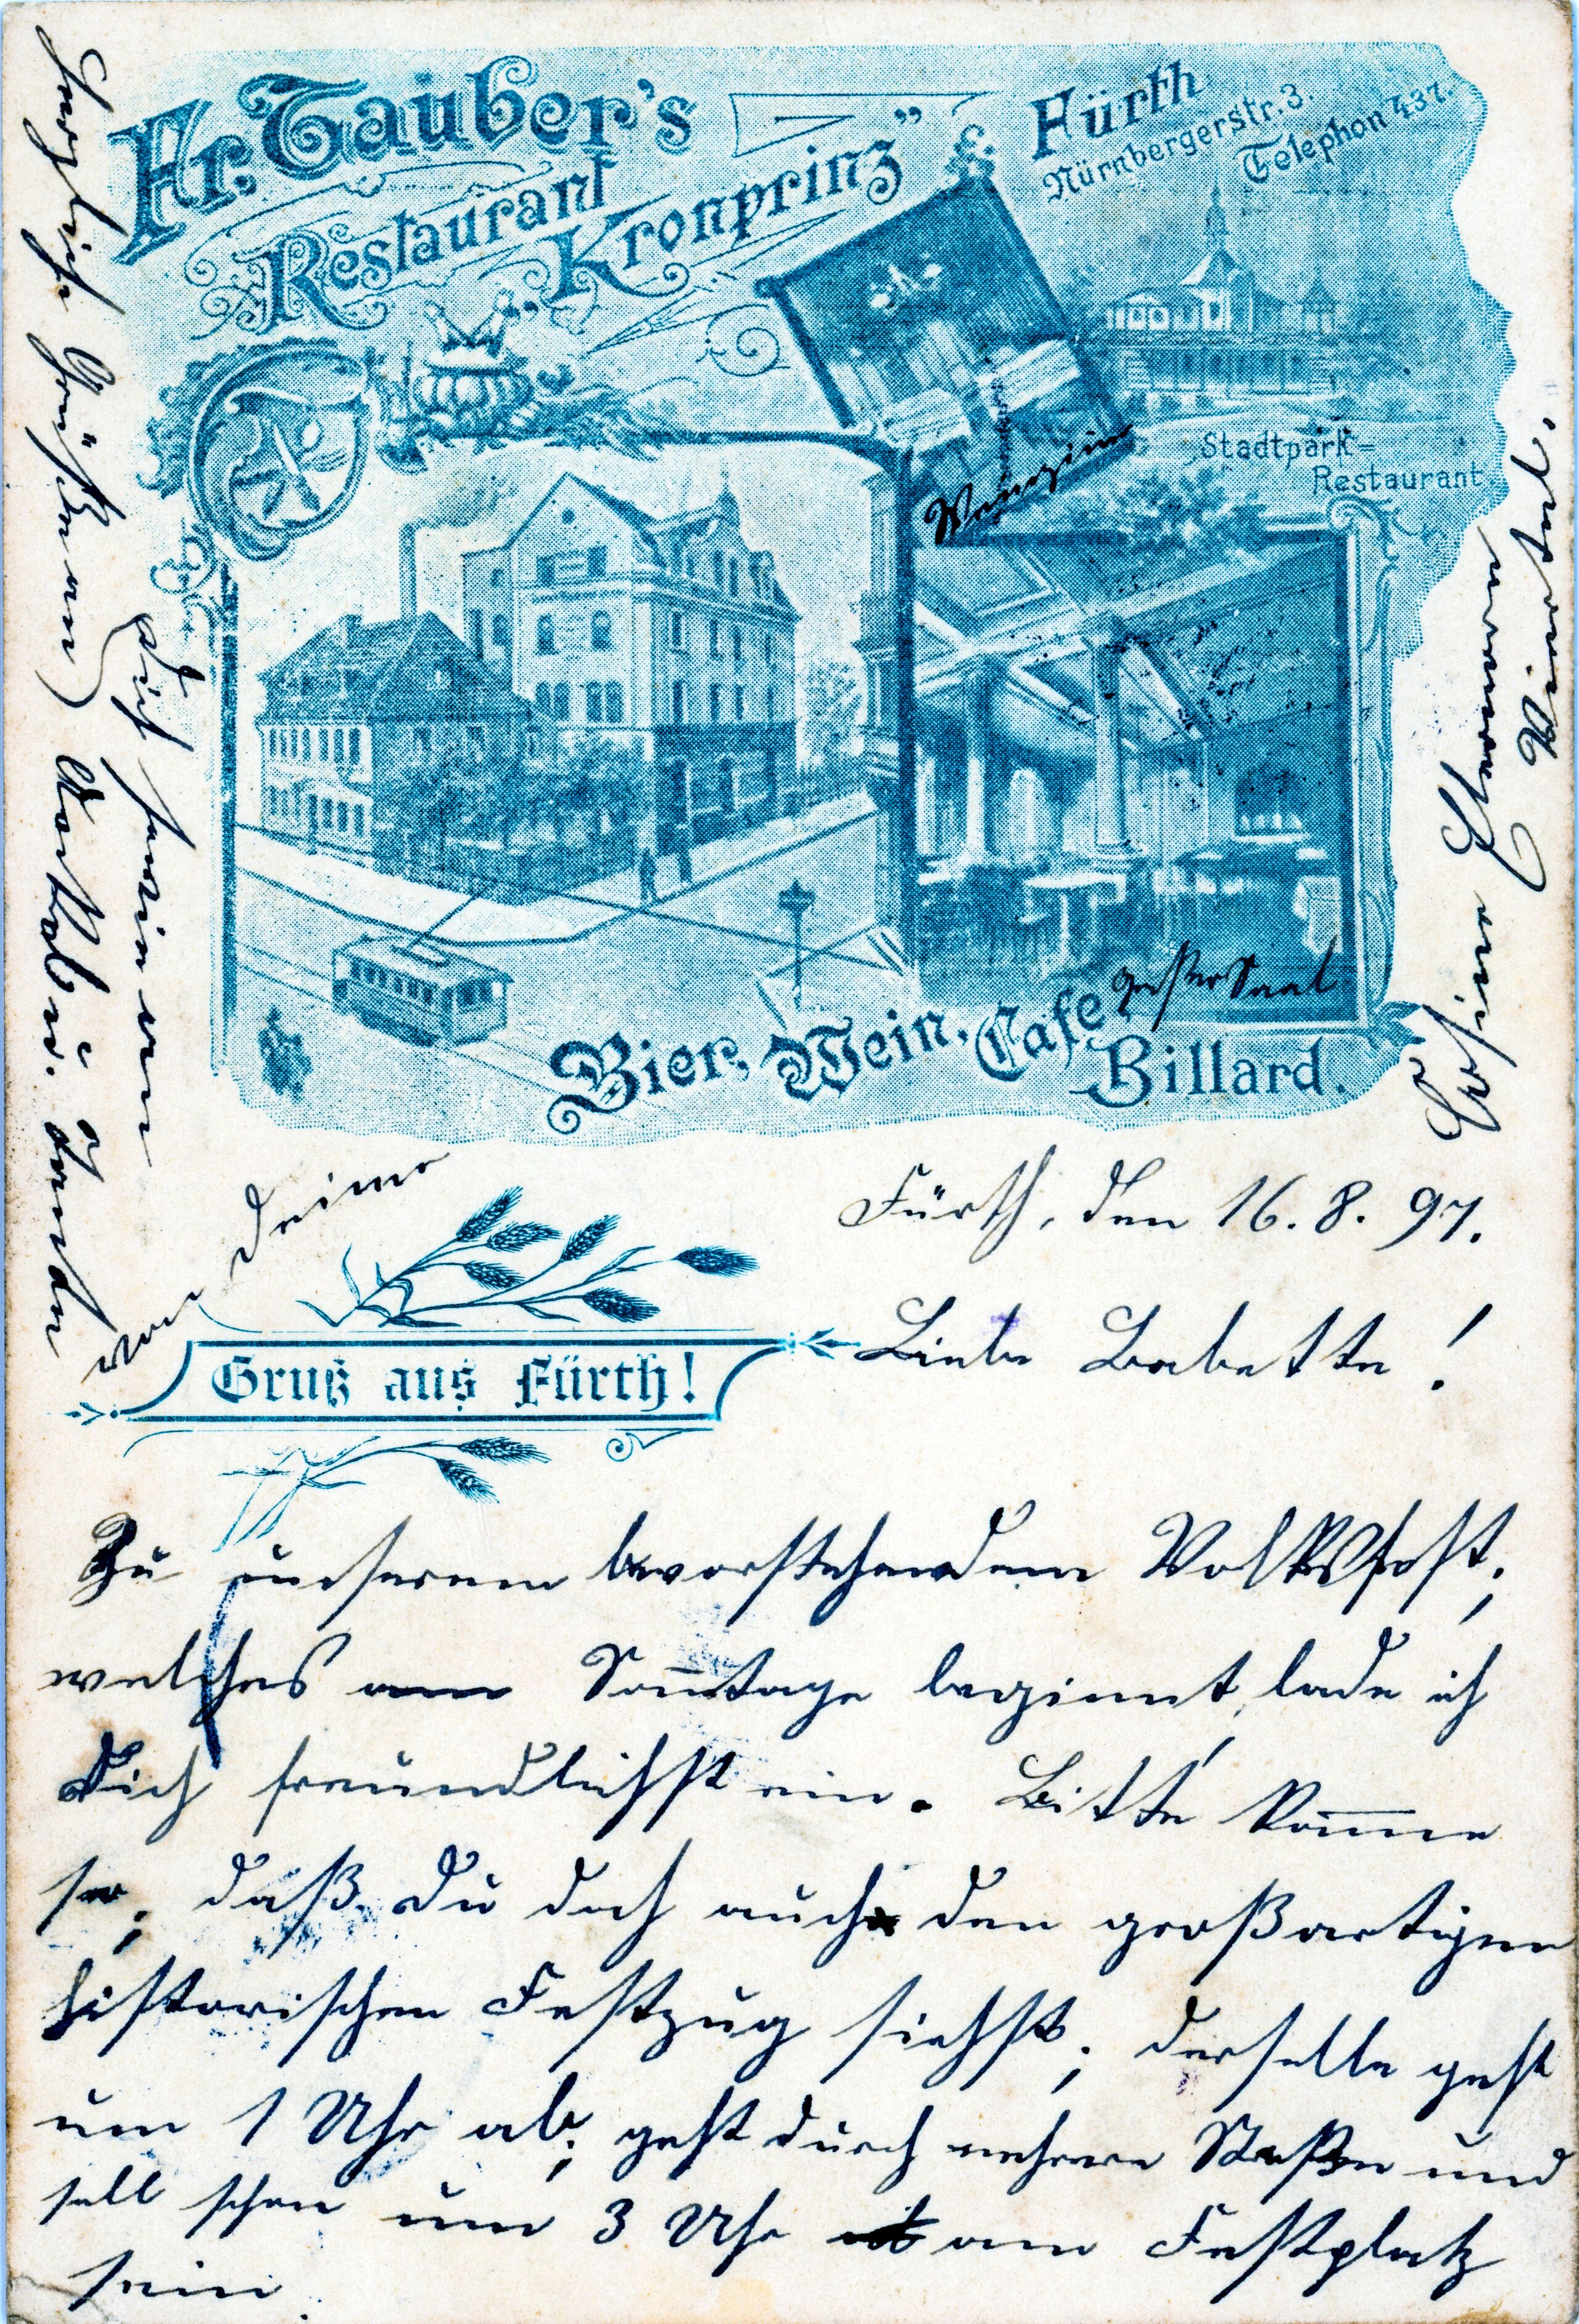 Fr. Tauber's
Restaurant
„Kronprinz”
Fürth
Nürnbergerstr. 3.
Telephon 437.
Stadtpark-
Restaurant
Weinzim
großer Saal
Bier, Wein, Cafe
Billard.
Gruß aus Fürth!
Fürth, den 16. 8. 97.
Liebe Babette!
Zu unserem bevorstehendem Volksfest,
welches am Sonntage beginnt, lade ich
Dich freundlichst ein. Bitte komme
so, daß Du doch auch den großartigen
historischen Festzug siehst, derselbe geht
um 1 Uhr ab, geht durch mehrere Straßen und
soll schon um 3 Uhr am Festplatz
sein.
Es wird
Herzliche Grüße an
von Deine
Dich